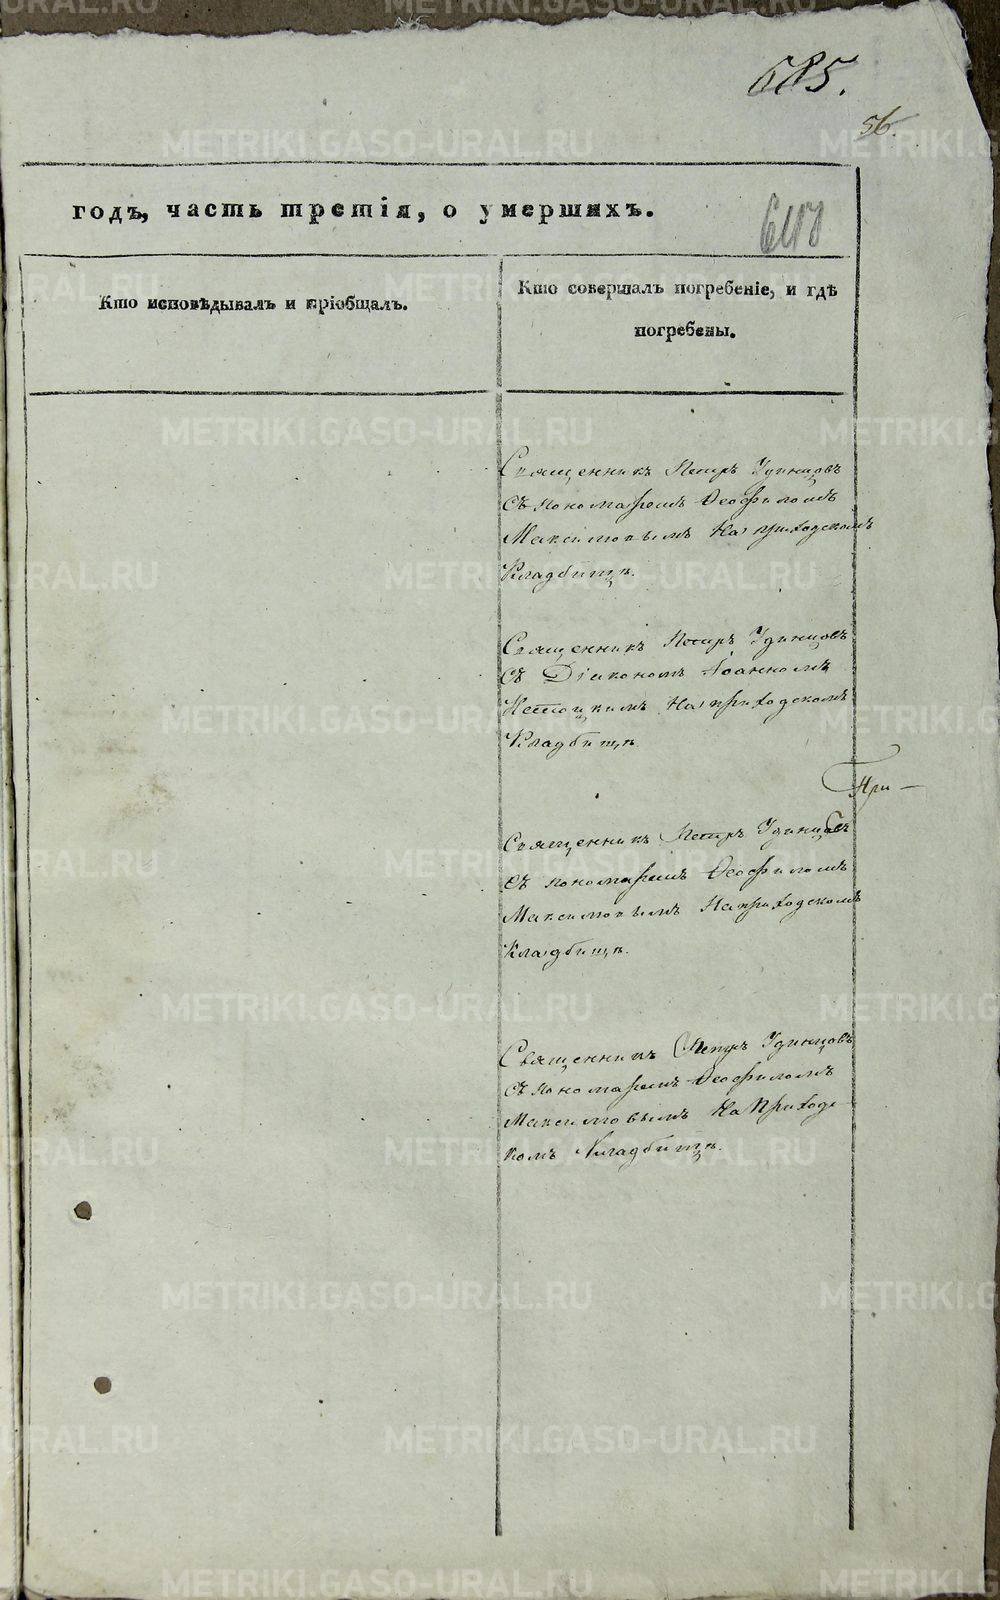 685.
56.
годъ, часть третія, о умершихъ.
Кто исповѣдывалъ и пріобщалъ.
Кто совершалъ погребеніе, и гдѣ
погребены.
Священникъ Петръ Удинцовъ
съ пономаремъ Ѳеофиломъ
Максимовымъ На приходскомъ
Кладбищѣ.
Священникъ Петръ Удинцовъ
съ Діакономъ Іоанномъ
На приходскомъ
Кладбищѣ
При —
Священникъ Петръ Удинцовъ
съ пономаремъ Ѳеофиломъ
Максимовымъ На приходскомъ
Кладбищѣ.
Священникъ Петръ Удинцовъ
съ пономаремъ Ѳеофиломъ
Максимовымъ На Приходс
комъ Кладбищѣ.
METRIKI.GASO-URAL.RU